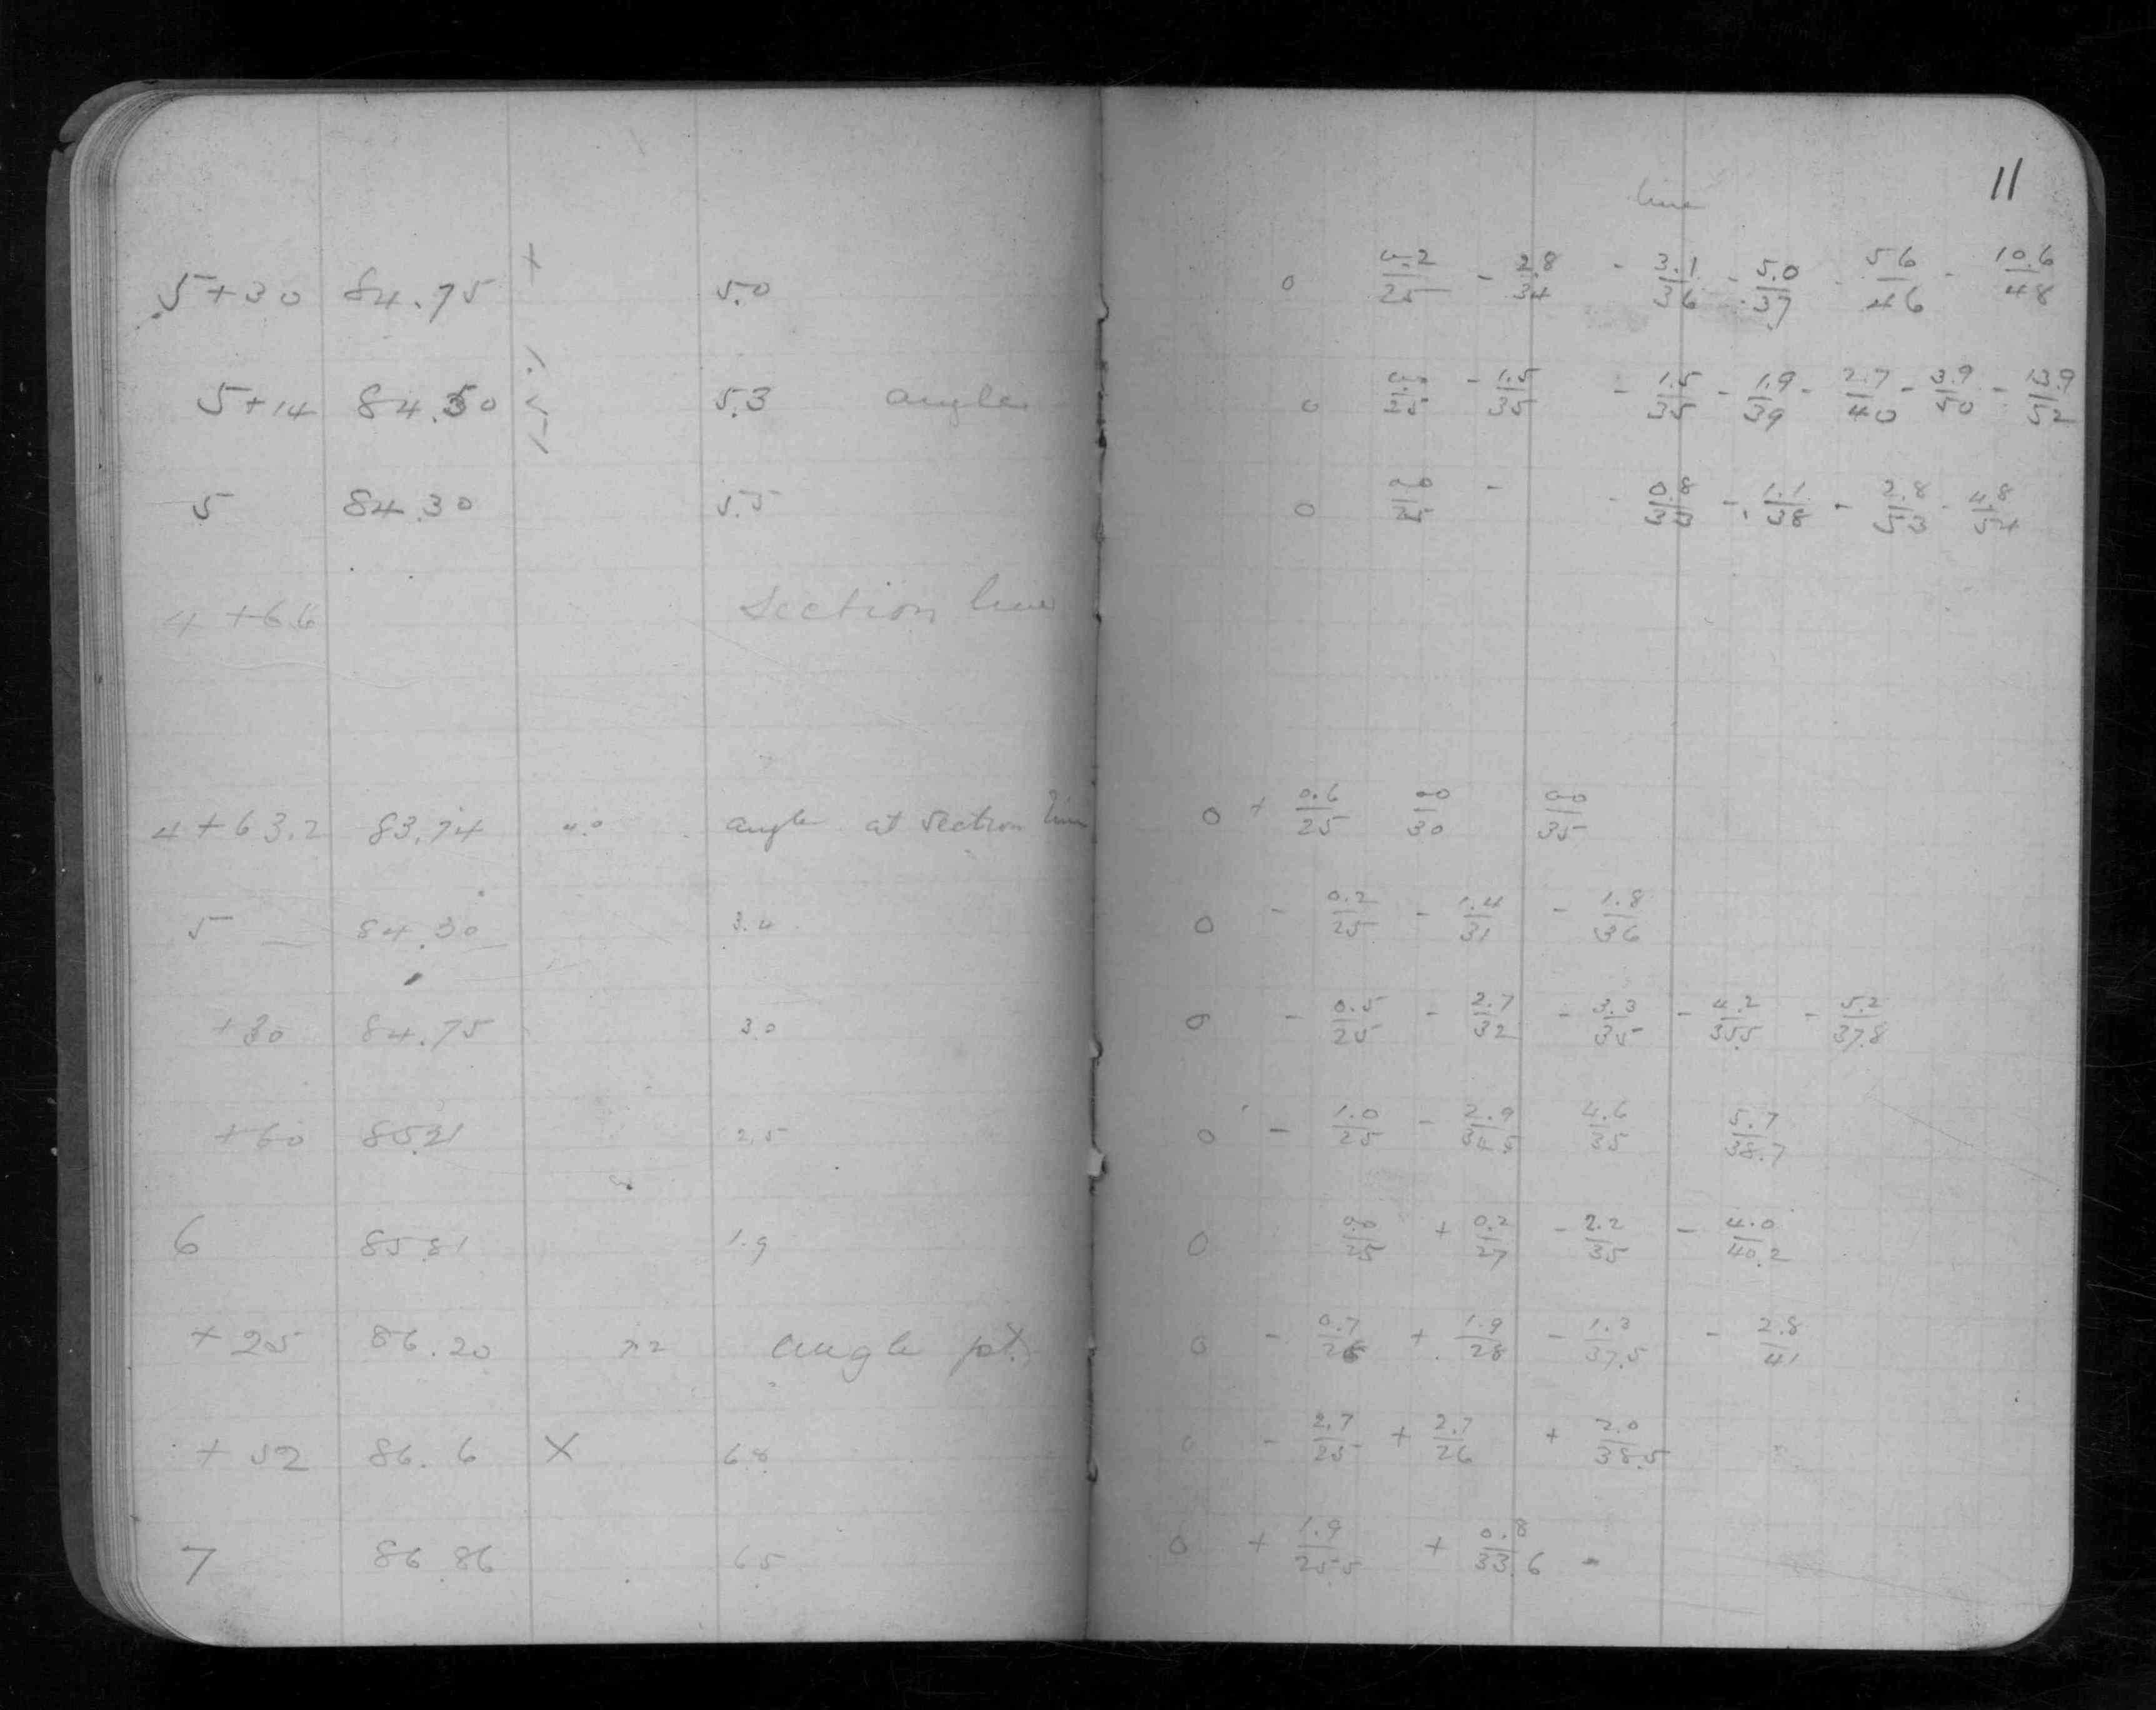 11
line
5+30 84.75 + 5.0 0 0.2/25 - 2.8/34 - 3.1/36 - 5.0/37 - 5.6/46 - 10.6/48
5+14 84.50 5.3 angle 0 - 1.5/35 - 1.5/35 - 1.9/39 - 2.7/40 - 3.9/50 - 13.9/52
5 84.30 5.5 0 0.0/25 - - 0.8/33 - 1.1/38 - 2.8/53 - 4.8/54
4+66 Section line
4+63.2 83.74 4.0 angle at section line 0 + 0.6/25 0.0/30 0.0/35
5 84.30 3.4 0 - 0.2/25 - 1.4/31 - 1.8/36
+30 84.75 3.0 0 - 0.5/25 - 2.7/32 - 3.3/35 - 4.2/35.5 - 5.2/37.8
+60 85.21 2.5 0 - 1.0/25 - 2.9/34.5 4.6/35 5.7/38.7
6 85.81 1.9 0 0.0/25 + 0.2/27 - 2.2/35 - 4.0/40.2
+25 86.20 angle pt. 0 - 0.7/26 + 1.9/28 - 1.3/37.5 - 2.8/41
+52 86.6 X 6.8 0 - 2.7/25 + 2.7/26 + 2.0/38.5
7 86.86 6.5 0 + 1.9/25.5 + 0.8/33.6 -